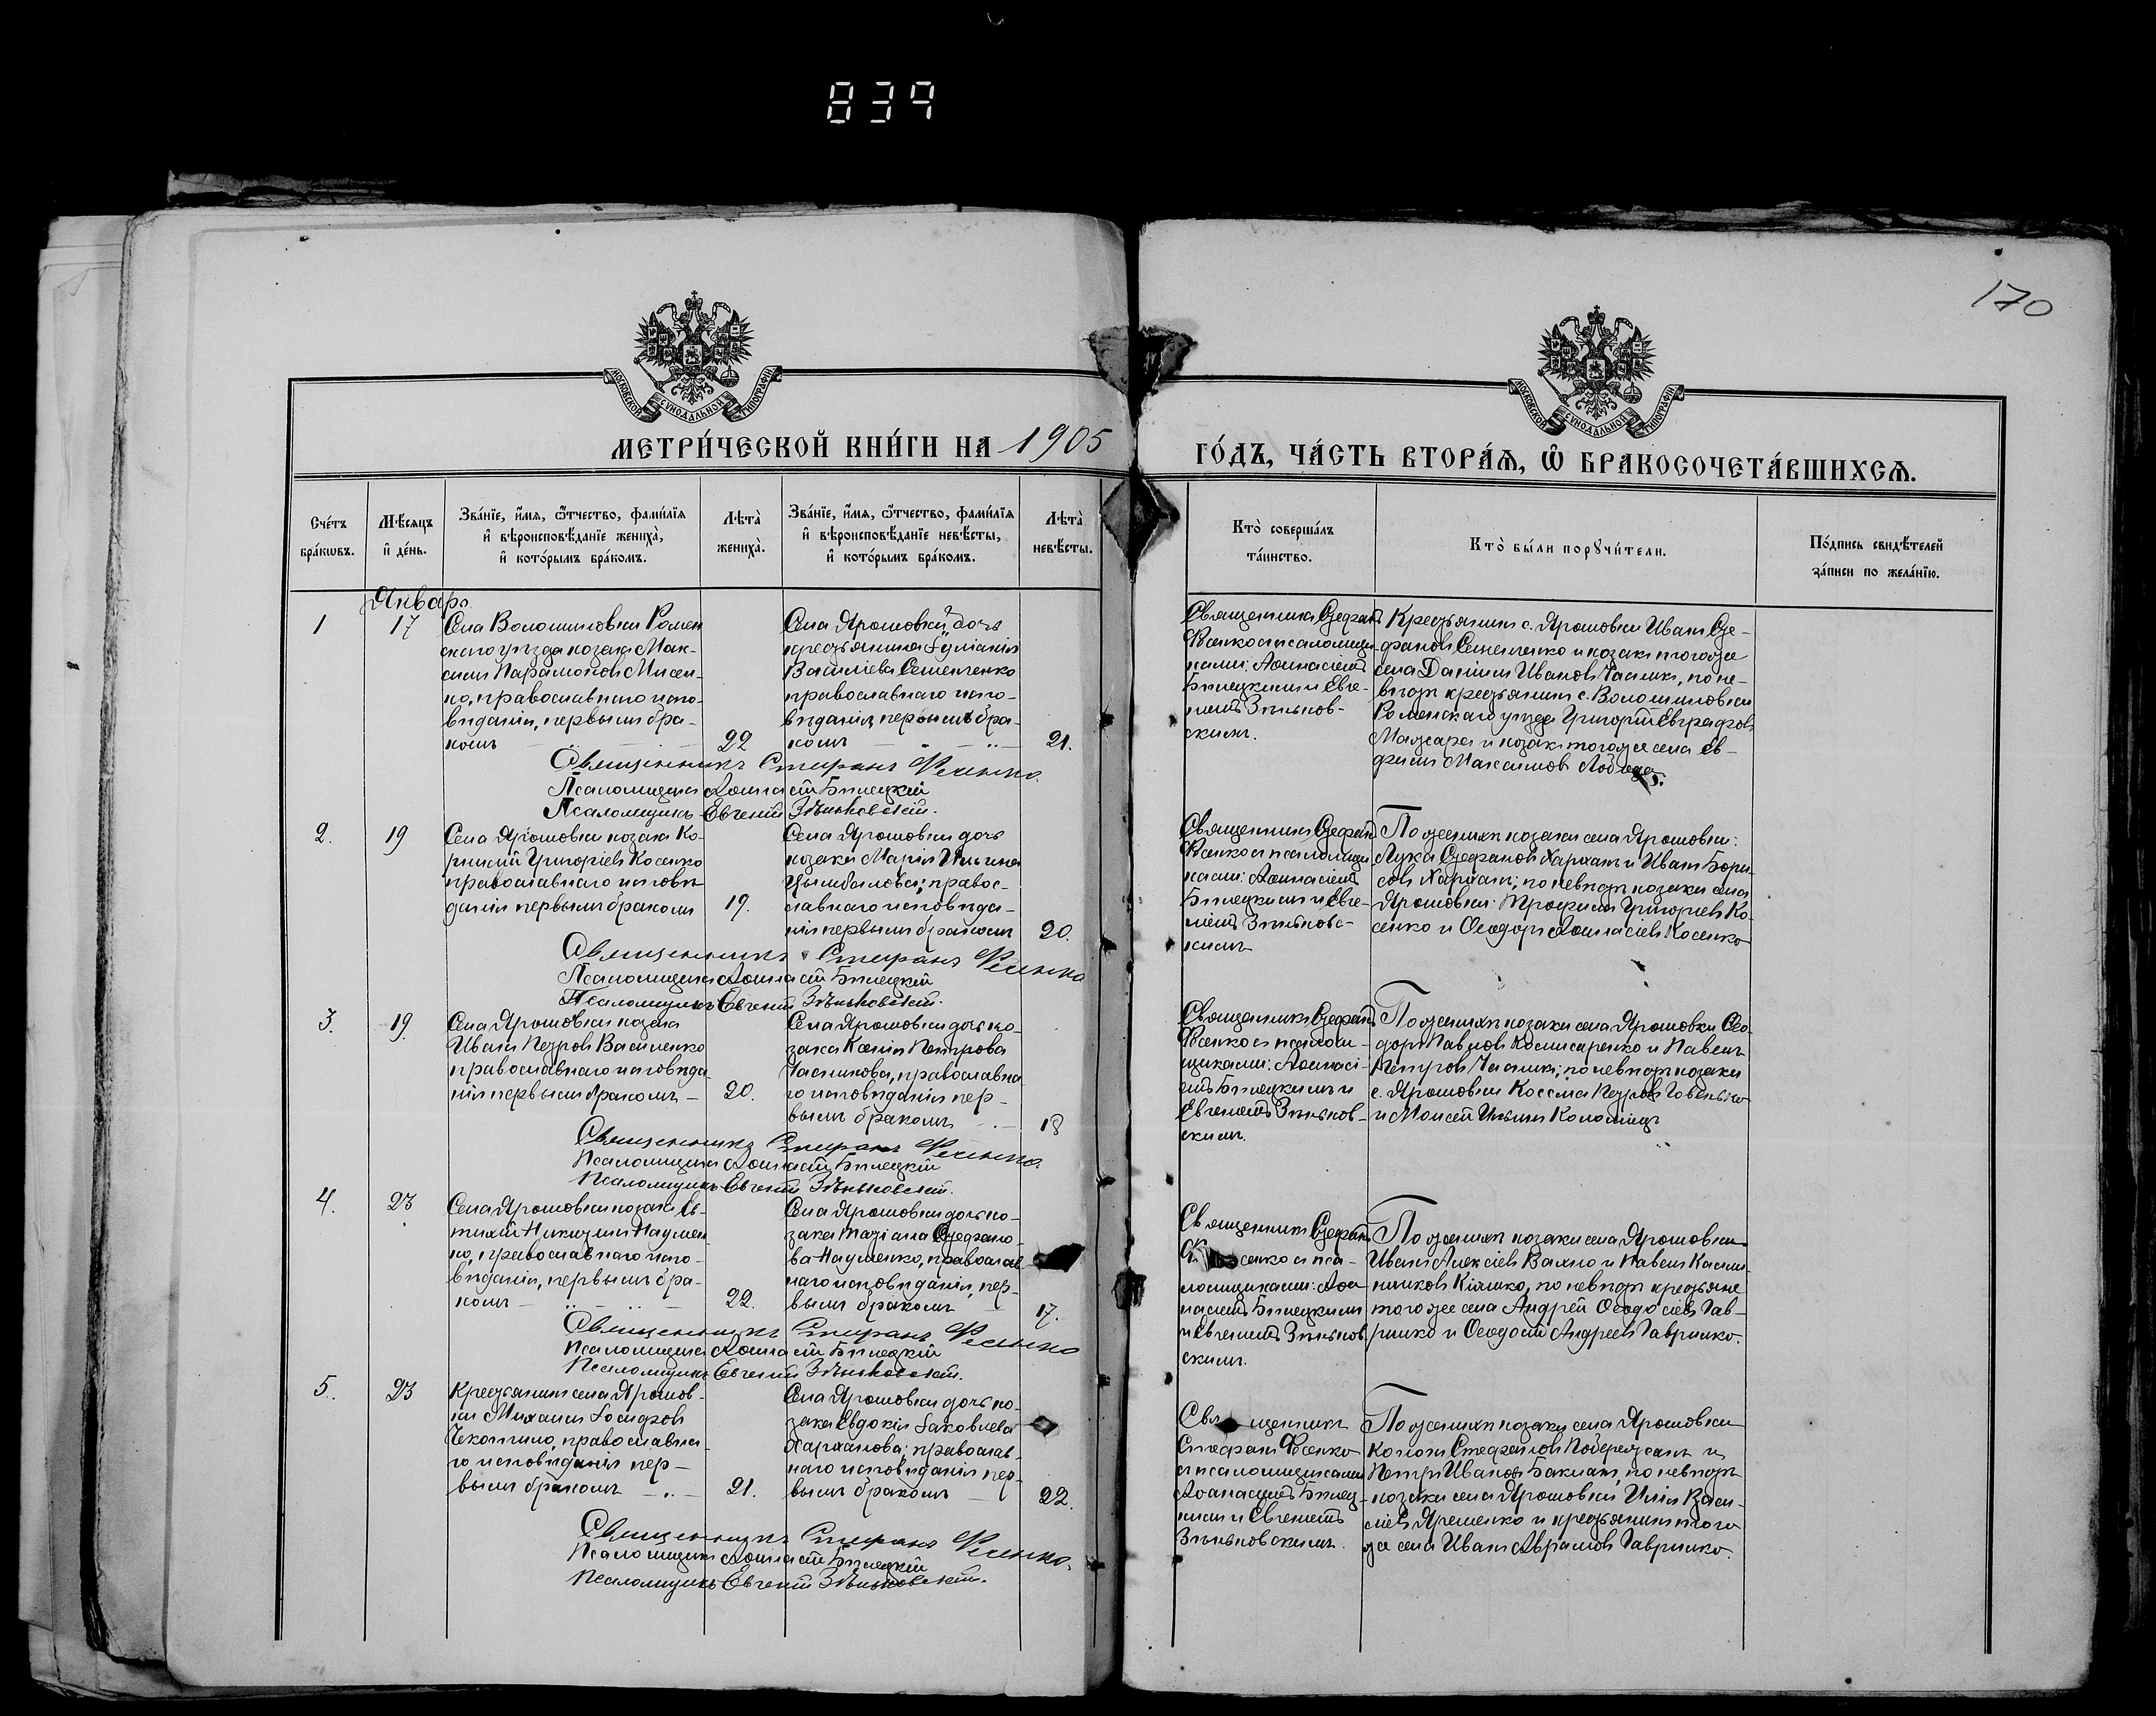 839
170
МОСКОВСКОЙ СУНОДАЛЬНОЙ ТИПОГРАФІИ
МОСКОВСКОЙ СУНОДАЛЬНОЙ ТИПОГРАФІИ
МЕТРИ́ЧЕСКОЙ КНИ́ГИ НА 1905
ГО́ДЪ, ЧА́СТЬ ВТОРА́Я, Ѡ҆ БРАКОСОЧЕТА́ВШИХСЯ.
Сче́тъ
бра́кѡвъ.
Мѣ́сяцъ
и҆ де́нь.
Зва́нїе, и҆́мя, ѻ҆́тчество, фами́лїя
и҆ вѣроисповѣ́данїе жениха̀,
и҆ кото́рымъ бра́комъ.
Лѣта̀
жениха̀.
Зва́нїе, и҆́мя, ѻ҆́тчество, фами́лїя
и҆ вѣроисповѣ́данїе невѣ́сты,
и҆ кото́рымъ бра́комъ.
Лѣта̀
невѣ́сты.
Кто̀ соверша́лъ
та́инство.
Кто̀ бы́ли порꙋчи́тели.
По́дпись свидѣ́телей
за́писи по жела́нїю.
Январь
1
17
Села Волошиновки Ромен
скаго уѣзда козакъ Мак-
симъ Парамоновъ Мисен-
ко, православнаго испо-
вѣданія, первымъ бра-
комъ
22
Села Ярошовки дочь
крестьянина
Василіева Семененко
православнаго испо-
вѣданія, первымъ бра-
комъ
21.
Священникъ Стефанъ
Фесенко съ псаломщи
ками: Аѳанасіемъ
Билецкимъ и Евге-
ніемъ Зѣньков-
скимъ.
Крестьянинъ с. Ярошовки Иванъ Сте-
фановъ Семененко и козакъ тогоже
села Даніилъ Ивановъ Часникъ, по не-
вѣстѣ крестьянинъ с. Волошиновки
Роменскаго уѣзда Григорій Евграфовъ
Мажара и козакъ тогоже села Ев-
фимъ Максимовъ Лобода.
Священникъ Стефанъ Фесенко.
Псаломщикъ Аѳанасій Билецкій
Псаломщикъ Евгеній Зѣньковскій.
2.
19
Села Ярошовки козакъ Ко-
рнилій Григоріевъ Косенко
православнаго исповѣ-
данія первымъ бракомъ
19.
Села Ярошовки дочь
козака Марія Ильина
Цымбалова; правос-
славнаго исповѣда-
нія первымъ бракомъ
20.
Священникъ Стефанъ
Фесенко съ псаломщи
ками: Аѳанасіемъ
Билецкимъ и Евге-
ніемъ Зѣньковс-
кимъ
По женихѣ козаки села Ярошовки:
Лука Стефановъ Харханъ и Иванъ Бори-
совъ Харханъ; по невѣстѣ козаки села
Ярошовки: Трофимъ Григорьевъ Ко-
сенко и Ѳеодоръ Аѳанасіевъ Косенко
Священникъ Стефанъ Фесенко
Псаломщикъ Аѳанасій Билецкій
Псаломщикъ Евгеній Зѣньковскій.
3.
19.
Села Ярошовки козакъ
Иванъ Петровъ Василенко
православнаго исповѣда-
нія первымъ бракомъ
20.
Села Ярошовки дочь ко-
зака Ксенія Петрова
Часникова, православна
го исповѣданія пер-
вымъ бракомъ
18
Священникъ Стефанъ
Фесенко съ псалом-
щиками: Аѳанасі-
емъ Билецкимъ и
Евгеніемъ Зѣньков-
скимъ.
По женихѣ козаки села Ярошовки Ѳео-
доръ Павловъ Комисаренко и Павелъ
Петровъ Часникъ; по невѣстѣ козаки
с. Ярошовки Косьма Петровъ
и Моисей Ильинъ Коломіецъ
Священникъ Стефанъ Фесенко.
Псаломщикъ Аѳанасій Билецкій
Псаломщикъ Евгеній Зѣньковскій.
4.
23
Села Ярошовки козакъ Ев-
тихій Никитинъ Наумен-
ко, православнаго испо-
вѣданія, первымъ бра-
комъ
22.
Села Ярошовки дочь ко-
зака Татіана Стефано-
ва Науменко, православ-
наго исповѣданія, пер-
вымъ бракомъ
17.
Священникъ Стефанъ
сенко съ пса-
ломщиками: Аѳа-
насіемъ Билецкимъ
и Евгеніемъ Зѣньков
скимъ.
По женихѣ козаки села Ярошовки
Иванъ Алексіевъ Вахно и Павелъ Калли-
никовъ Кіяшко, по невѣстѣ крестьяне
тогоже села Андрей Ѳеодосіевъ Гав-
ришко и Ѳеодосій Андреевъ Гавришко.
Священникъ Стефанъ Фесенко
Псаломщикъ Аѳанасій Билецкій
Псаломщикъ Евгеній Зѣньковскій.
5.
23
Крестьянинъ села Ярошов-
ки Михаилъ Іосифовъ
православна-
го исповѣданія пер-
вымъ бракомъ
21.
Села Ярошовки дочь ко-
зака Евдокія Іаковлева
Харханова; православ-
наго исповѣданія пер-
вымъ бракомъ
22.
Свя щенникъ
Стефанъ Фесенко
съ псаломщиками
Аѳанасіемъ Билец-
кимъ и Евгеніемъ
Зѣньковскимъ.
По женихѣ козаки села Ярошовки
Кононъ Стефановъ Побережанъ и
Петръ Ивановъ Бакланъ, по невѣстѣ
козаки села Ярошовки Илія Васи-
ліевъ Яременко и крестьянинъ того
же села Иванъ Авраамовъ Гавришко.
Священникъ Стефанъ Фесенко.
Псаломщикъ Аѳанасій Билецкій
Псаломщикъ Евгеній Зѣньковскій.